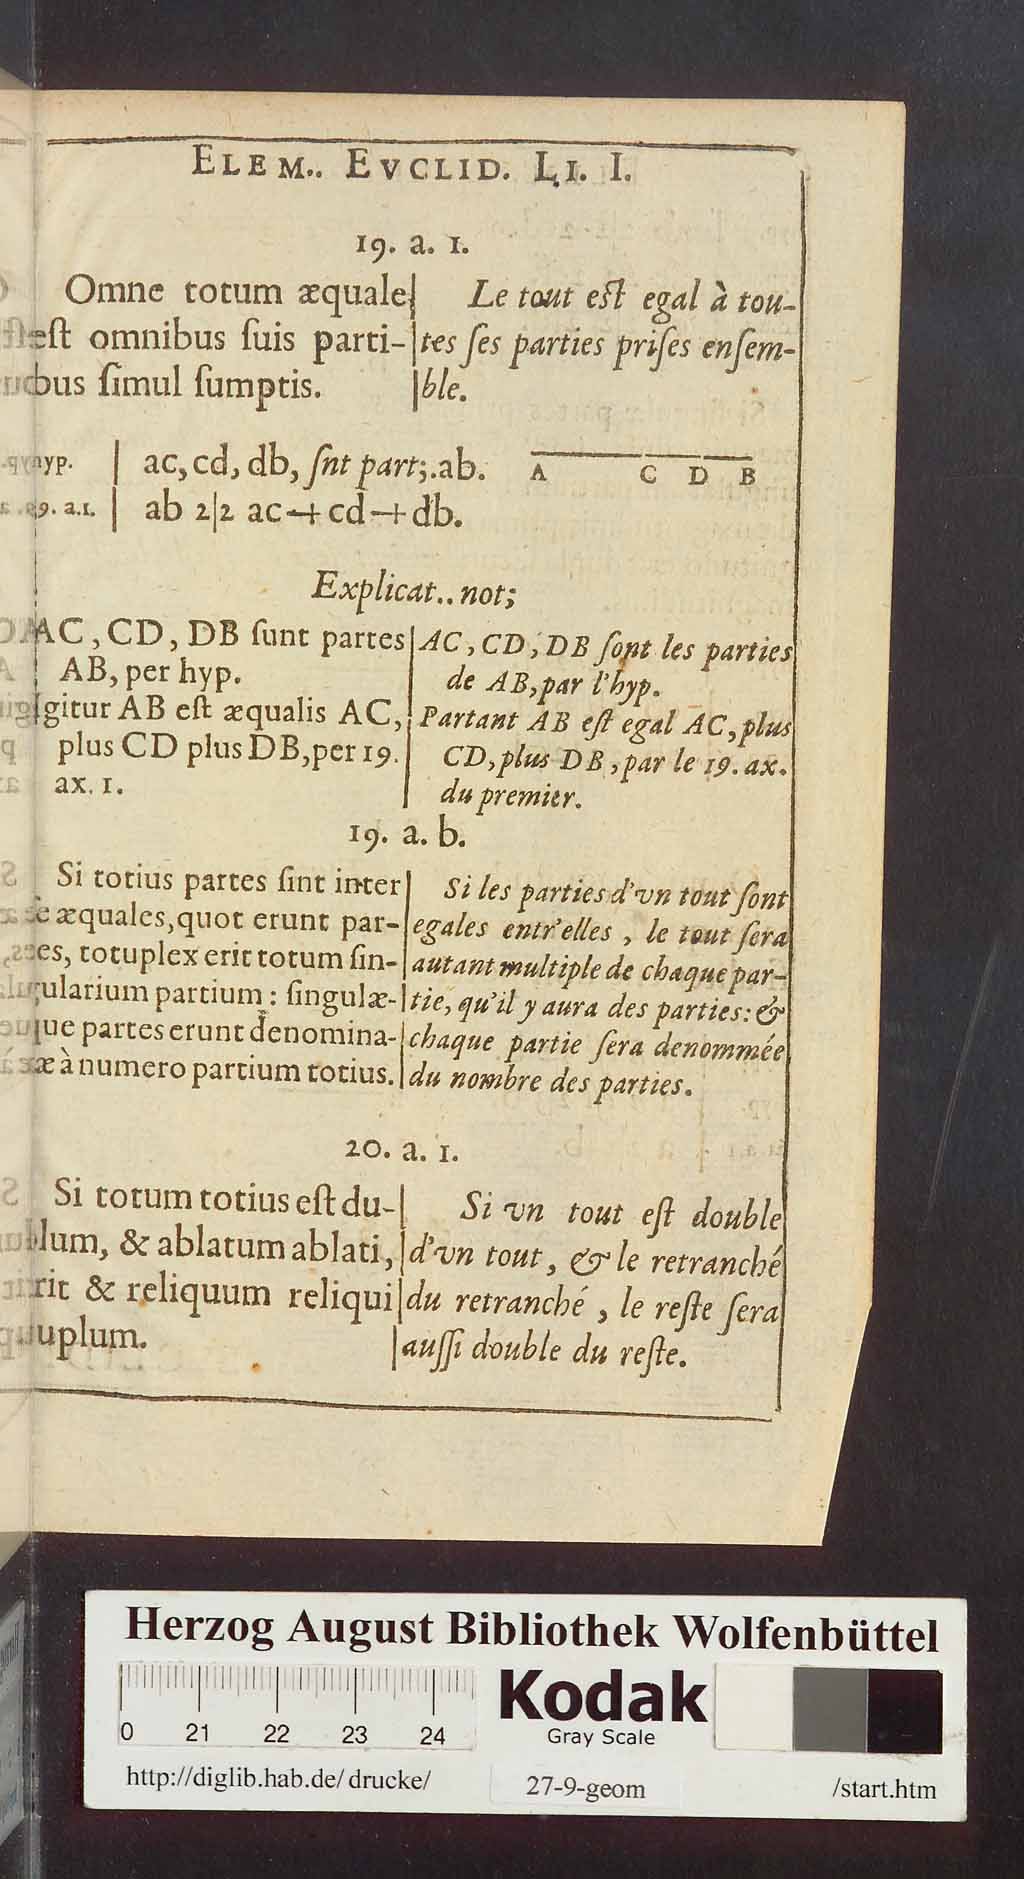 ELEM.. EVCLID. LI. I.
19. a. 1.
Omne totum æquale
est omnibus suis parti-
bus simul sumptis.
Le tout est egal à tou-
tes ses parties prises ensem-
ble.
hyp. | ac, cd, db, snt part;.ab.
A C D B
19. a.1. | ab 2|2 ac + cd + db.
Explicat.. not;
AC, CD, DB sunt partes
AB, per hyp.
Igitur AB est æqualis AC,
plus CD plus DB, per 19.
ax. 1.
AC, CD, DB sont les parties
de AB, par l'hyp.
Partant AB est egal AC, plus
CD, plus DB, par le 19. ax.
du premier.
19. a. b.
Si totius partes sint inter
se æquales, quot erunt par-
tes, totuplex erit totum sin-
gularium partium: singulæ-
que partes erunt denomina-
tæ à numero partium totius.
Si les parties d'vn tout sont
egales entr'elles, le tout sera
autant multiple de chaque par-
tie, qu'il y aura des parties: &
chaque partie sera denommée
du nombre des parties.
20. a. 1.
Si totum totius est du-
plum, & ablatum ablati,
erit & reliquum reliqui
duplum.
Si vn tout est double
d'vn tout, & le retranché
du retranché, le reste sera
aussi double du reste.
Herzog August Bibliothek Wolfenbüttel
0 21 22 23 24
Kodak
Gray Scale
http://diglib.hab.de/drucke/ 27-9-geom /start.htm